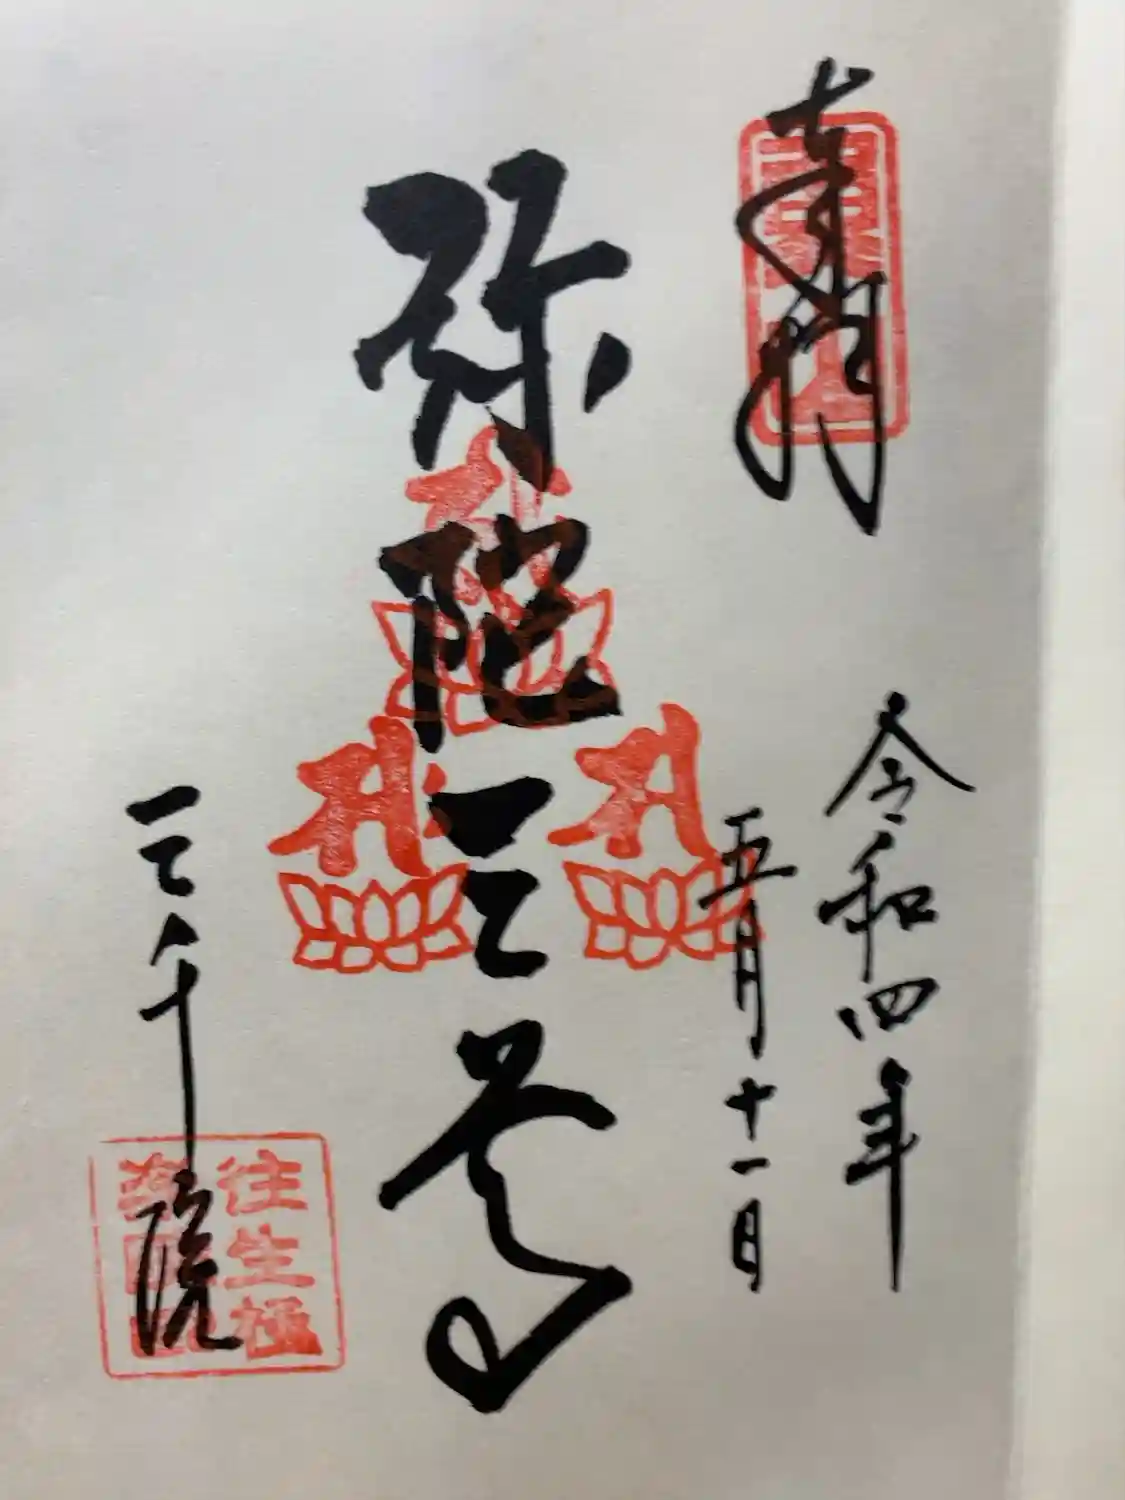 奉拝
令和四年
五月十一日
弥陀三尊
三千院
往生極
楽院